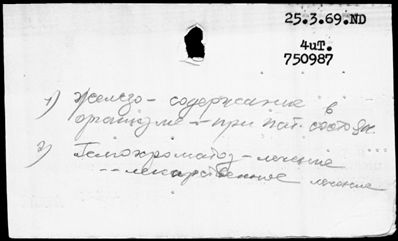 25.3.69.ND
4иТ.
750987
1) Железо - содержание в
организме - при пат. состоян.
2) Гемохроматоз - лечение
-- лекарственное лечение